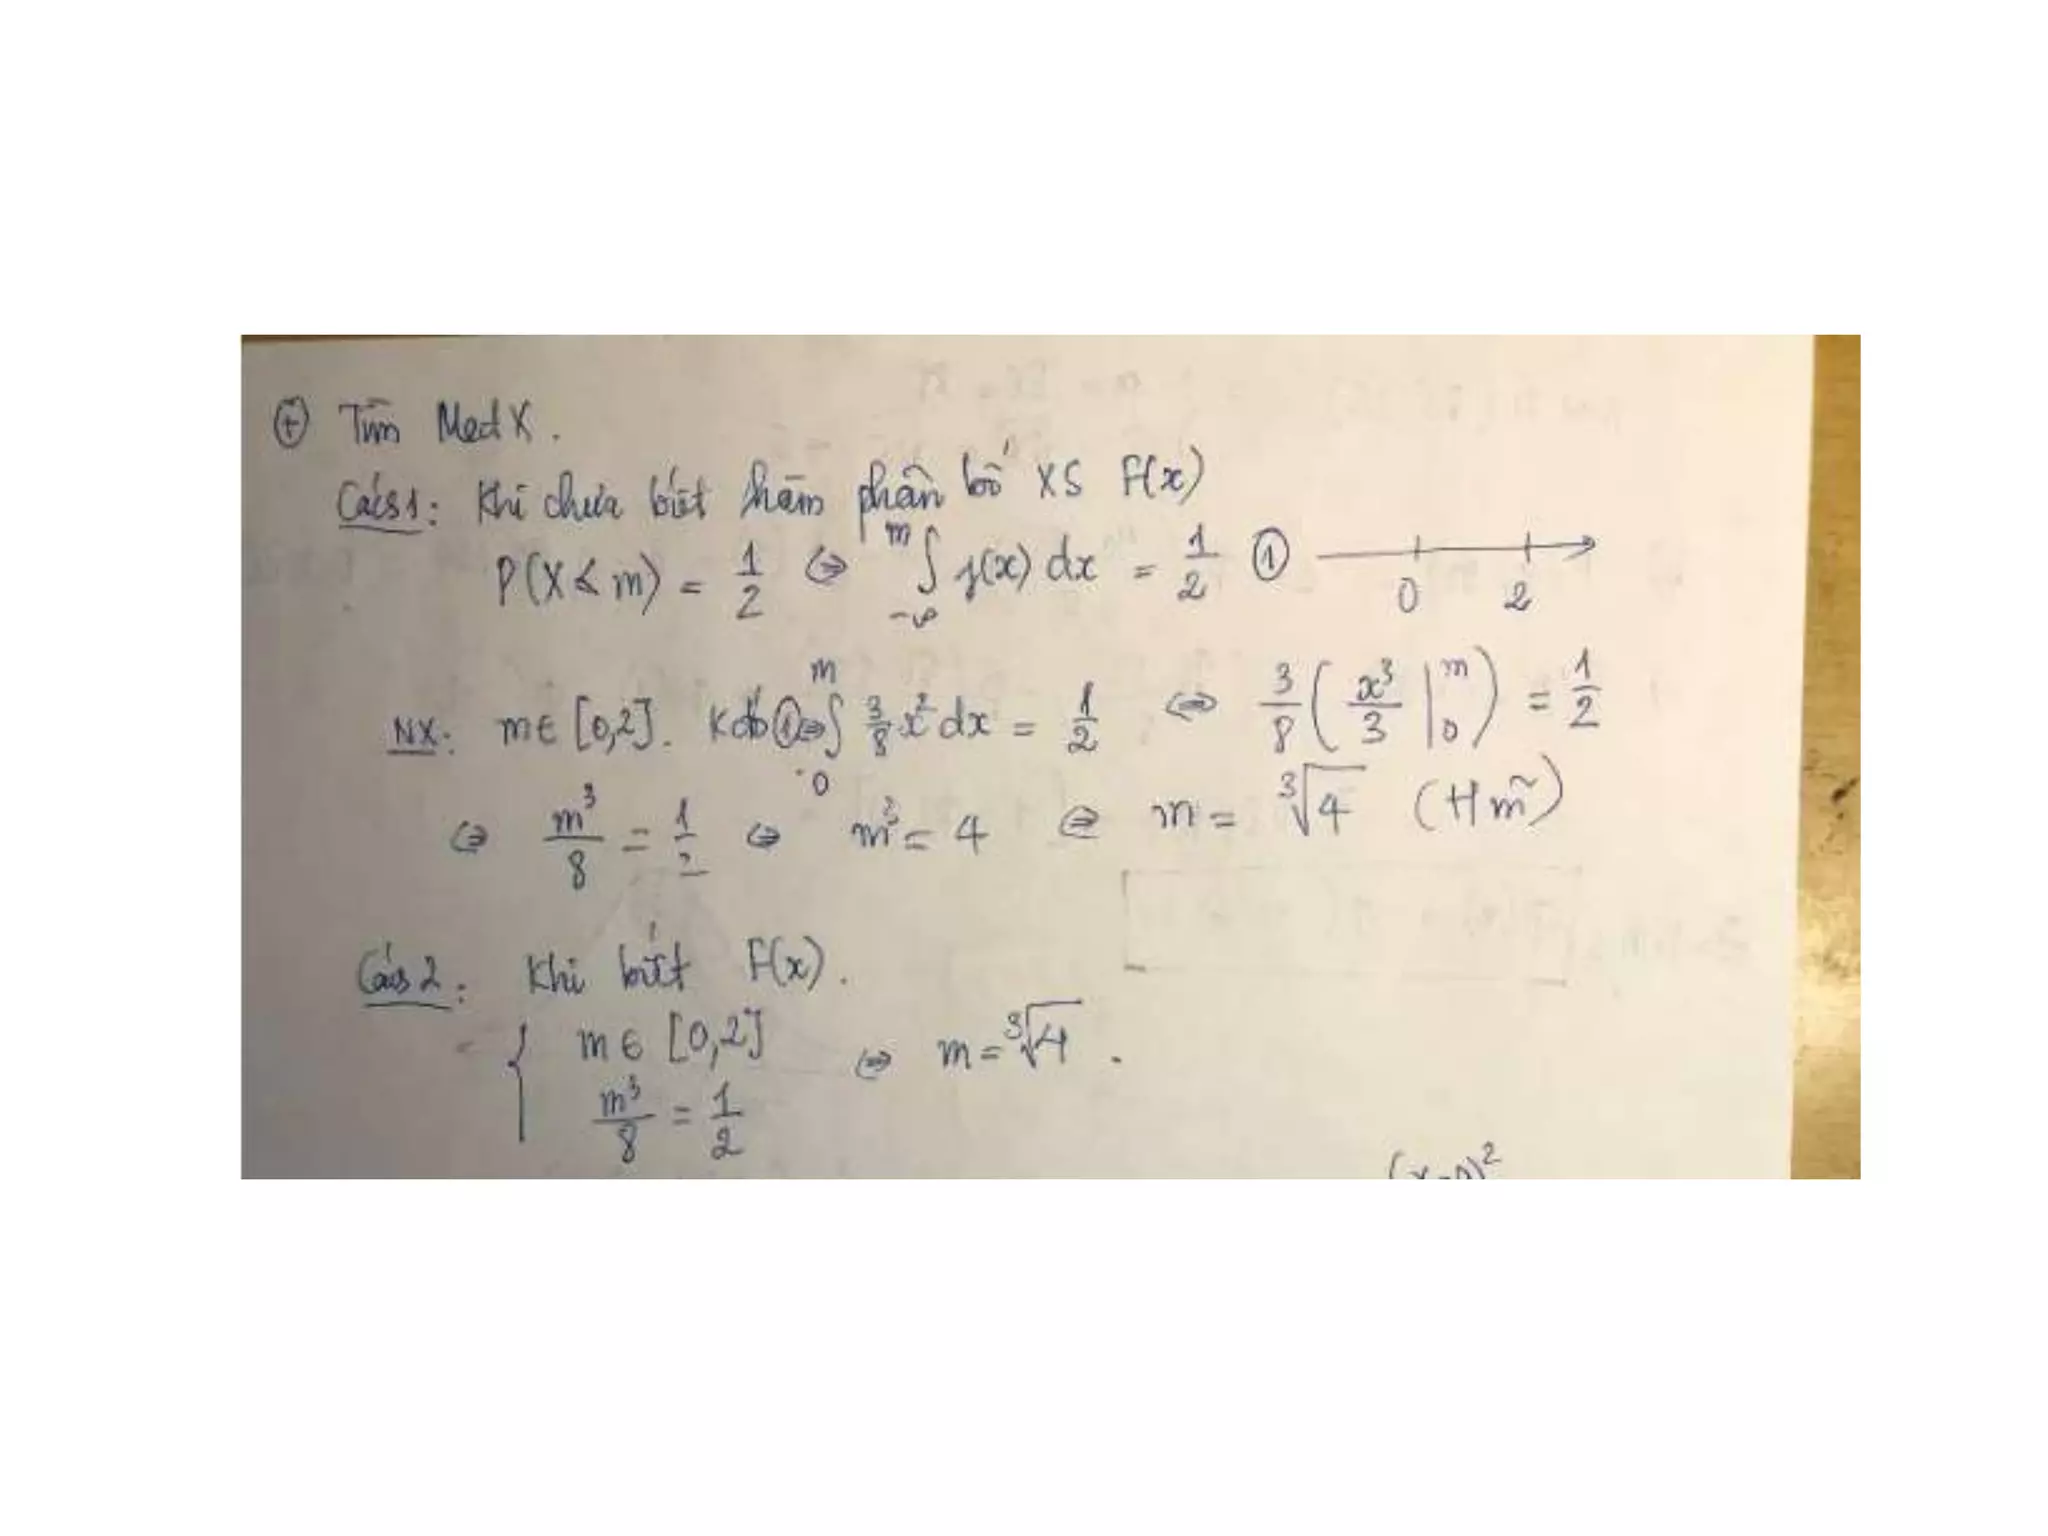 ⊕ Tìm Med X.
Cách 1: Khi chưa biết hàm phân bố XS F(x)
P(X < m) = 1/2 ⇔ ∫_{-∞}^{m} f(x) dx = 1/2 ① 0 2
NX: m ∈ [0,2]. Kđó ① ⇔ ∫_{0}^{m} 3/8 x² dx = 1/2 ⇔ 3/8 ( x³/3 |_{0}^{m} ) = 1/2
⇔ m³/8 = 1/2 ⇔ m³ = 4 ⇔ m = ∛4 (t/m)
Cách 2: Khi biết F(x).
{ m ∈ [0,2] ⇔ m = ∛4.
m³/8 = 1/2